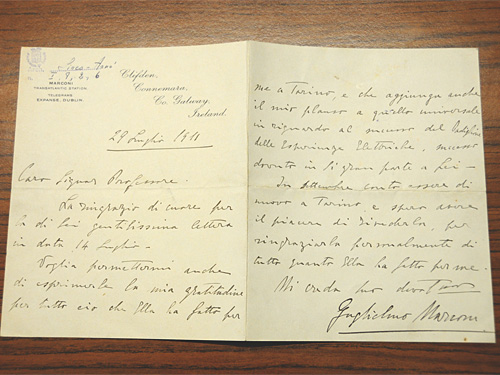 MARCONI
TRANSATLANTIC STATION.
TELEGRAMS
EXPANSE, DUBLIN.
Clifden,
Connemara,
Co. Galway,
Ireland.
29 Luglio 1911
Caro Signor Professore.
La ringrazio di cuore per
la di Lei gentilissima lettera
in data 14 Luglio -
Voglia permettermi anche
di esprimerle la mia gratitudine
per tutto ciò che Ella ha fatto per
me a Torino, e che aggiunga anche
il mio plauso a quello universale
in riguardo al successo del Padiglione
delle Esperienze Elettriche, successo
dovuto in sì gran parte a Lei -
In settembre conto essere di
nuovo a Torino, e spero avere
il piacere di rivederla, per
ringraziarla personalmente di
tutto quanto Ella ha fatto per me.
Mi creda suo
Guglielmo Marconi